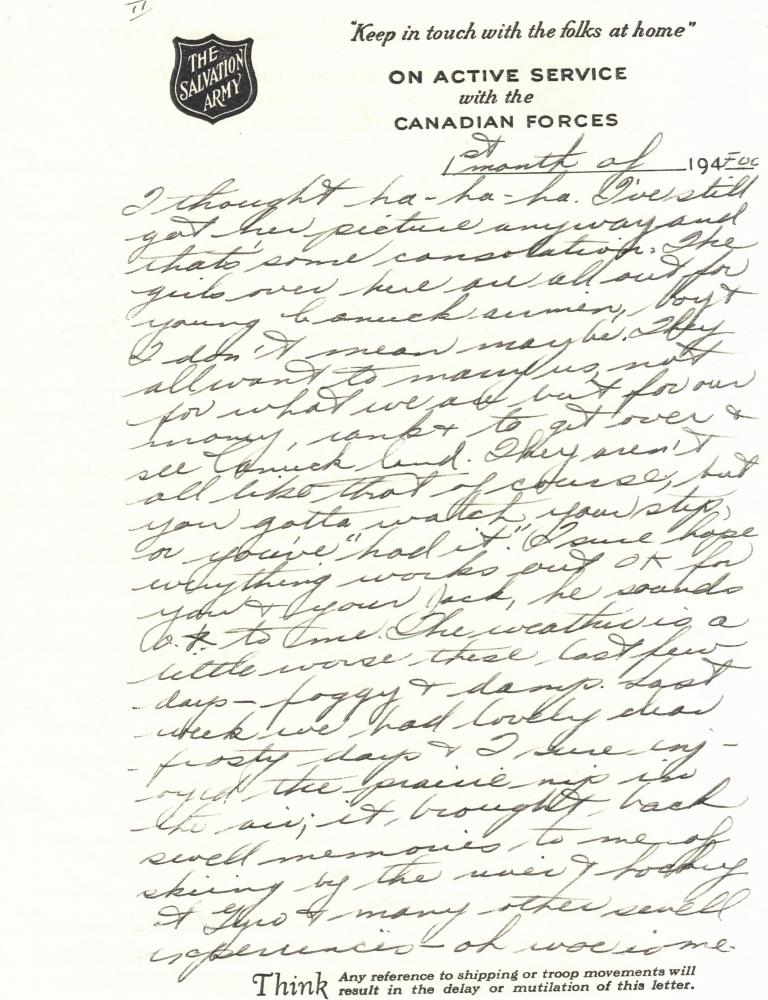 II
"Keep in touch with the folks at home"
THE
SALVATION
ARMY
ON ACTIVE SERVICE
with the
CANADIAN FORCES
1st month of 194Four
I thought ha-ha-ha. I've still
got her picture anyway and
that's some consolation. The
girls over here are all out for
young Canuck airmen, boy &
I don't mean maybe. They
all want to marry us, not
for what we are but for our
money, rank & to get over &
see Canuck land. They aren't
all like that of course, but
you gotta watch your step,
or you've "had it." I sure hope
everything works out OK for
you & your Jack, he sounds
o.k to me. The weather is a
little worse these last few
days - foggy & damp. Last
week we had lovely clear
frosty days & I sure inj-
oyed the prairie nip in
the air; it brought back
swell memories to me of
skiing by the river & hockey
at Gyro & many other swell
experiences - oh woe is me.
Think Any reference to shipping or troop movements will
result in the delay or mutilation of this letter.